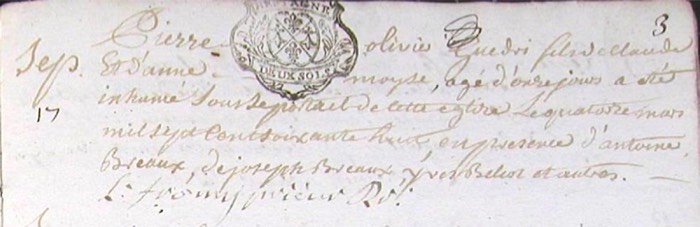 3
Pierre olivie Guedri fils de Claude
Sep. Et d'anne moyse, agé d'onze jours a eté
17 inhumé Sous le portail de cette eglise Le quatorze mars
mil Sept Cent Soixante huit, en presence d'antoine
Breaux, de joseph Breaux, yves Beliot et autres.
L. fromy prieur Rr.
BRETAGNE
DEUX SOLS